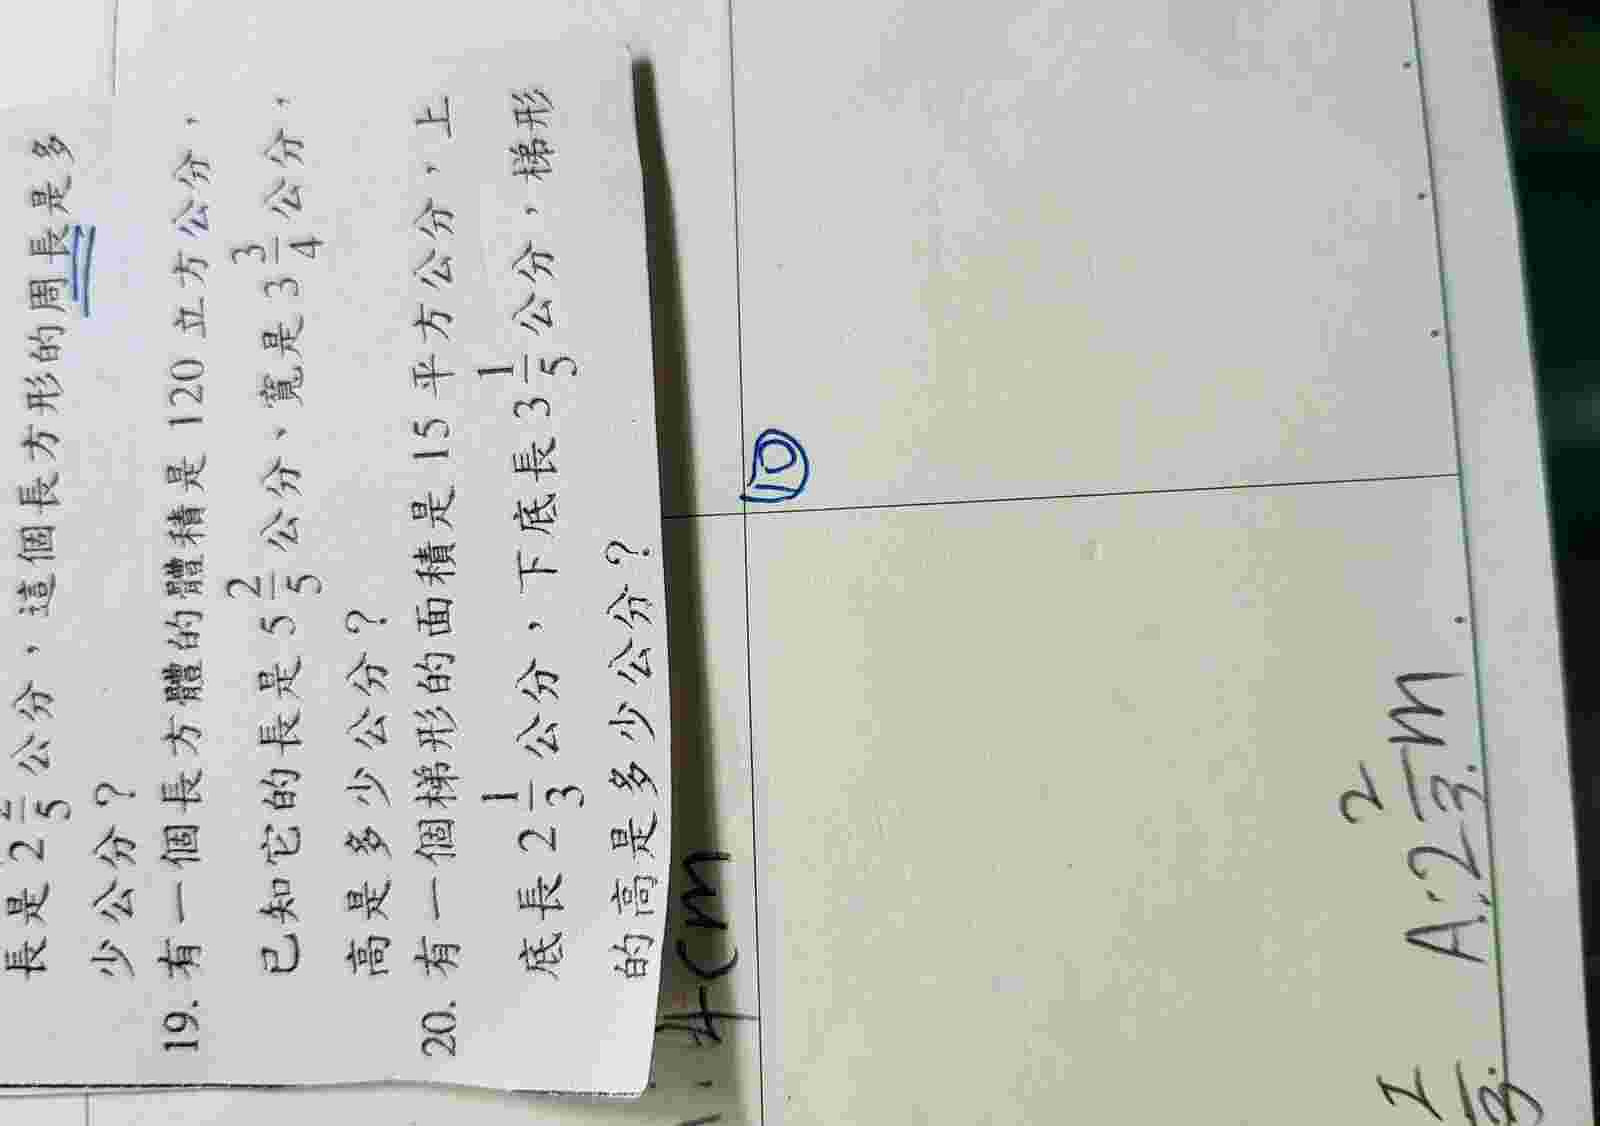 長是2 2/5公分，這個長方形的周長是多
少公分？
19. 有一個長方體的體積是120立方公分，
已知它的長是5 2/5公分、寬是3 3/4公分，
高是多少公分？
20. 有一個梯形的面積是15平方公分，上
底長2 1/3公分，下底長3 1/5公分，梯形
的高是多少公分？
4cm
10
A:2 2/3 m.